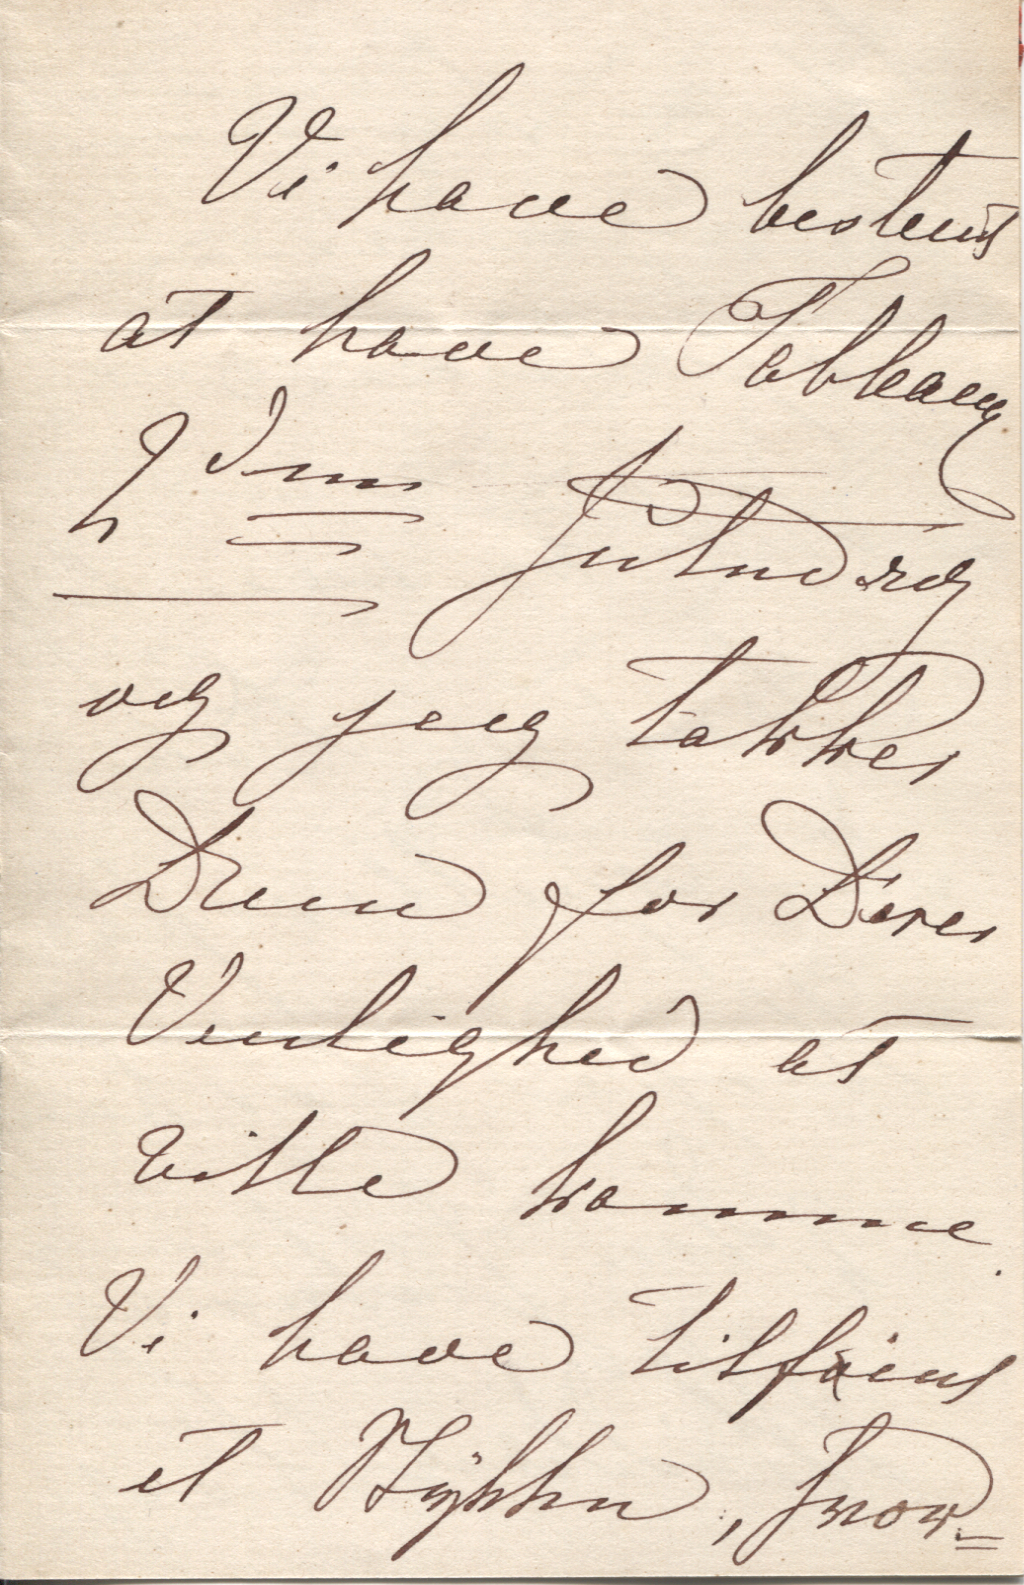 Vi have bestemt
at have Tableaux
2den Juledag
og jeg takker
Dem for Deres
Venlighed at
ville komme.
Vi have tilføiet
et Stykke, hvor=